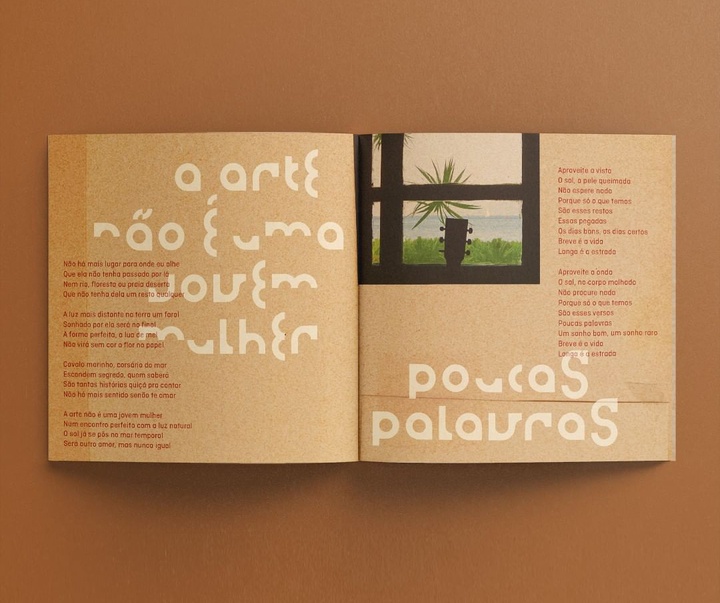 a arte
não é uma
jovem
mulher
Não há mais lugar para onde eu olhe
Que ela não tenha passado por lá
Nem rio, floresta ou praia deserta
Que não tenha dela um resto qualquer
A luz mais distante na terra um farol
Sonhado por ela será no final
A forma perfeita, a lua de mel
Não virá sem cor a flor no papel
Cavalo marinho, corsário do mar
Escondem segredo, quem saberá
São tantas histórias quiçá pra contar
Não há mais sentido senão te amar
A arte não é uma jovem mulher
Nem encontro perfeito com a luz natural
O sol já se pôs no mar temporal
Será outro amor, mas nunca igual
Aproveite a vista
O sol, a pele queimada
Não espere nada
Porque só o que temos
São esses restos
Essas pegadas
Os dias bons, os dias certos
Breve é a vida
Longa é a estrada
Aproveite a onda
O sol, no corpo molhado
Não procure nada
Porque só o que temos
São esses versos
Poucas palavras
Um sonho bom, um sonho raro
Breve é a vida
Longa é a estrada
poucas
palavras